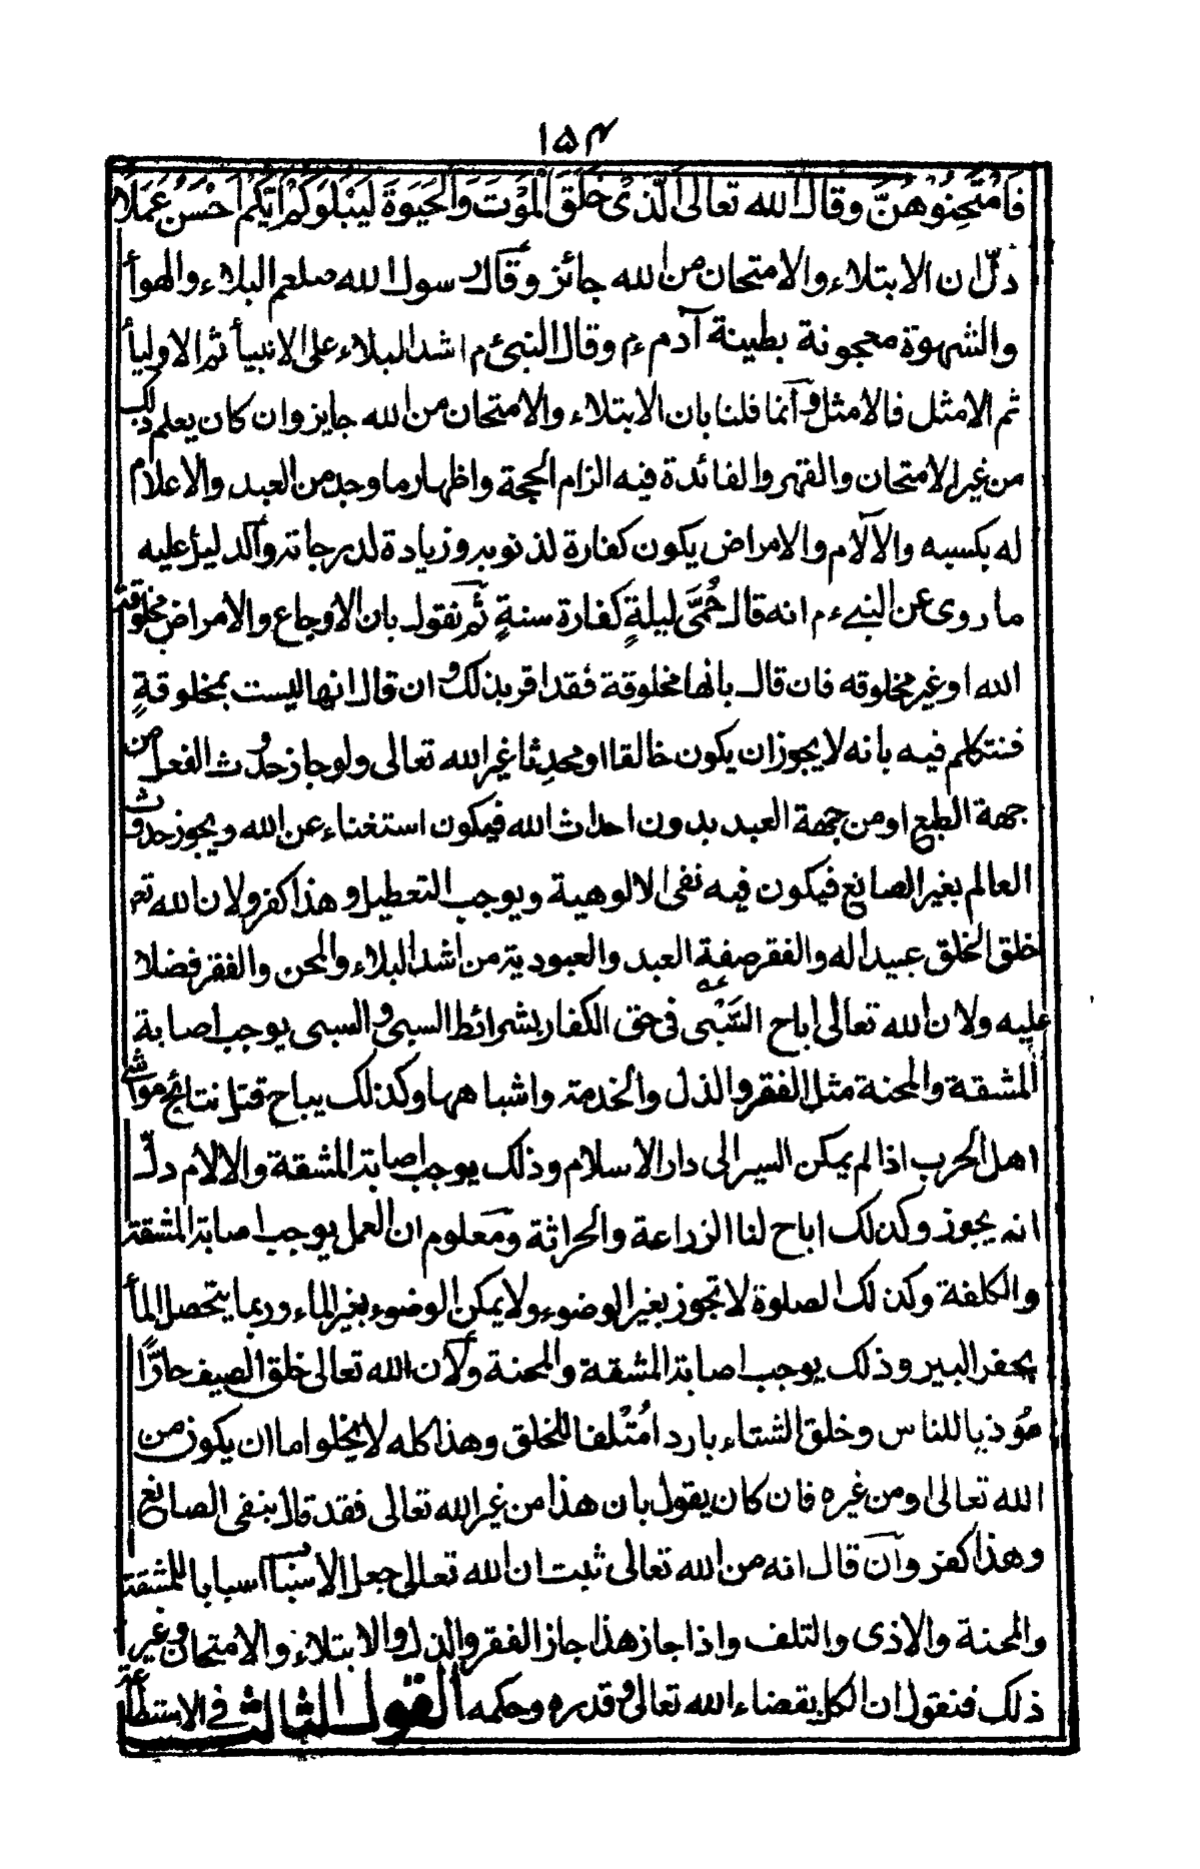 ١٥٤
فَامْتَحِنُوْهُنَّ وقال الله تعالى الَّذِىْ خَلَقَ الْمَوْتَ وَالْحَيَوةَ لِيَبْلُوَكُمْ اَيُّكُمْ اَحْسَنُ عَمَلًا
دلّ ان الابتلاء والامتحان من الله جائز وقال رسول الله صلعم البلاء والهوأ
والشهوة معجونة بطينة آدم ءم وقال النبىءم اشد البلاء على الانبيأ ثم الاوليأ
ثم الامثل فالامثل وآنما قلنا بان الابتلاء والامتحان من الله جايز وان كان يعلم ذلك
من غير الامتحان والقهر والفائدة فيه الزام الحجة واظهار ما وجد من العبد والاعلام
له بكسبه والآلام والامراض يكون كفارة لذنوبه وزيادة لدرجاته وآلدليل عليه
ما روى عن النبى ءم انه قال حُمَّى ليلةٍ كفارة سنةٍ ثم نقول بان الاوجاع والامراض مخلوقة
الله او غير مخلوقه فان قال بانها مخلوقة فقد اقر بذلك وان قال انها ليست بمخلوقةٍ
فنتكلم فيه بانه لا يجوز ان يكون خالقا او محدِثا غير الله تعالى ولو جاز حدُوث الفعل من
جهة الطبع او من جهة العبد بدون احداث الله فيكون استغناء عن الله ويجوز حدوث
العالم بغير الصانع فيكون فيه نفى الالوهية ويوجب التعطيل وهذا كفر ولان الله تعم
خلق الخلق عبيدا له والفقر صفة العبد والعبودية من اشد البلاء والمحن والفقر فضلا
عليه ولان الله تعالى اباح السَّبْى فى حق الكفار بشرائط السبى والسبى يوجب اصابة
المشقة والمحنة مثل الفقر والذل والخدمة واشباهها وكذلك يباح قتل نتائج مواشى
اهل الحرب اذا لم يمكن السير الى دار الاسلام وذلك يوجب اصابة المشقة والالام دلّ
انه يجوز وكذلك اباح لنا الزراعة والحراثة ومعلوم ان العمل يوجب اصابة المشقة
والكلفة وكذلك الصلوة لا تجوز بغير الوضوء ولا يمكن الوضوء بغير الماء وربما يتحصل المأ
بحفر البير وذلك يوجب اصابة المشقة والمحنة ولآن الله تعالى خلق الصيف حارًّا
مُوذيا للناس وخلق الشتاء باردا مُتْلفا للخلق وهذا كله لا يخلوا اما ان يكون من
الله تعالى او من غيره فان كان يقول بان هذا من غير الله تعالى فقد قال بنفى الصانع
وهذا كفر وآن قال انه من الله تعالى ثبت ان الله تعالى جعل الاسباب اسبابا للمشقة
والمحنة والاذى والتلف واذا جاز هذا جاز الفقر والذل والابتلاء والامتحان وغير
ذلك فنقول ان الكل بقضاء الله تعالى وقدره وحكمه القول الثالث فى الاستطاعة